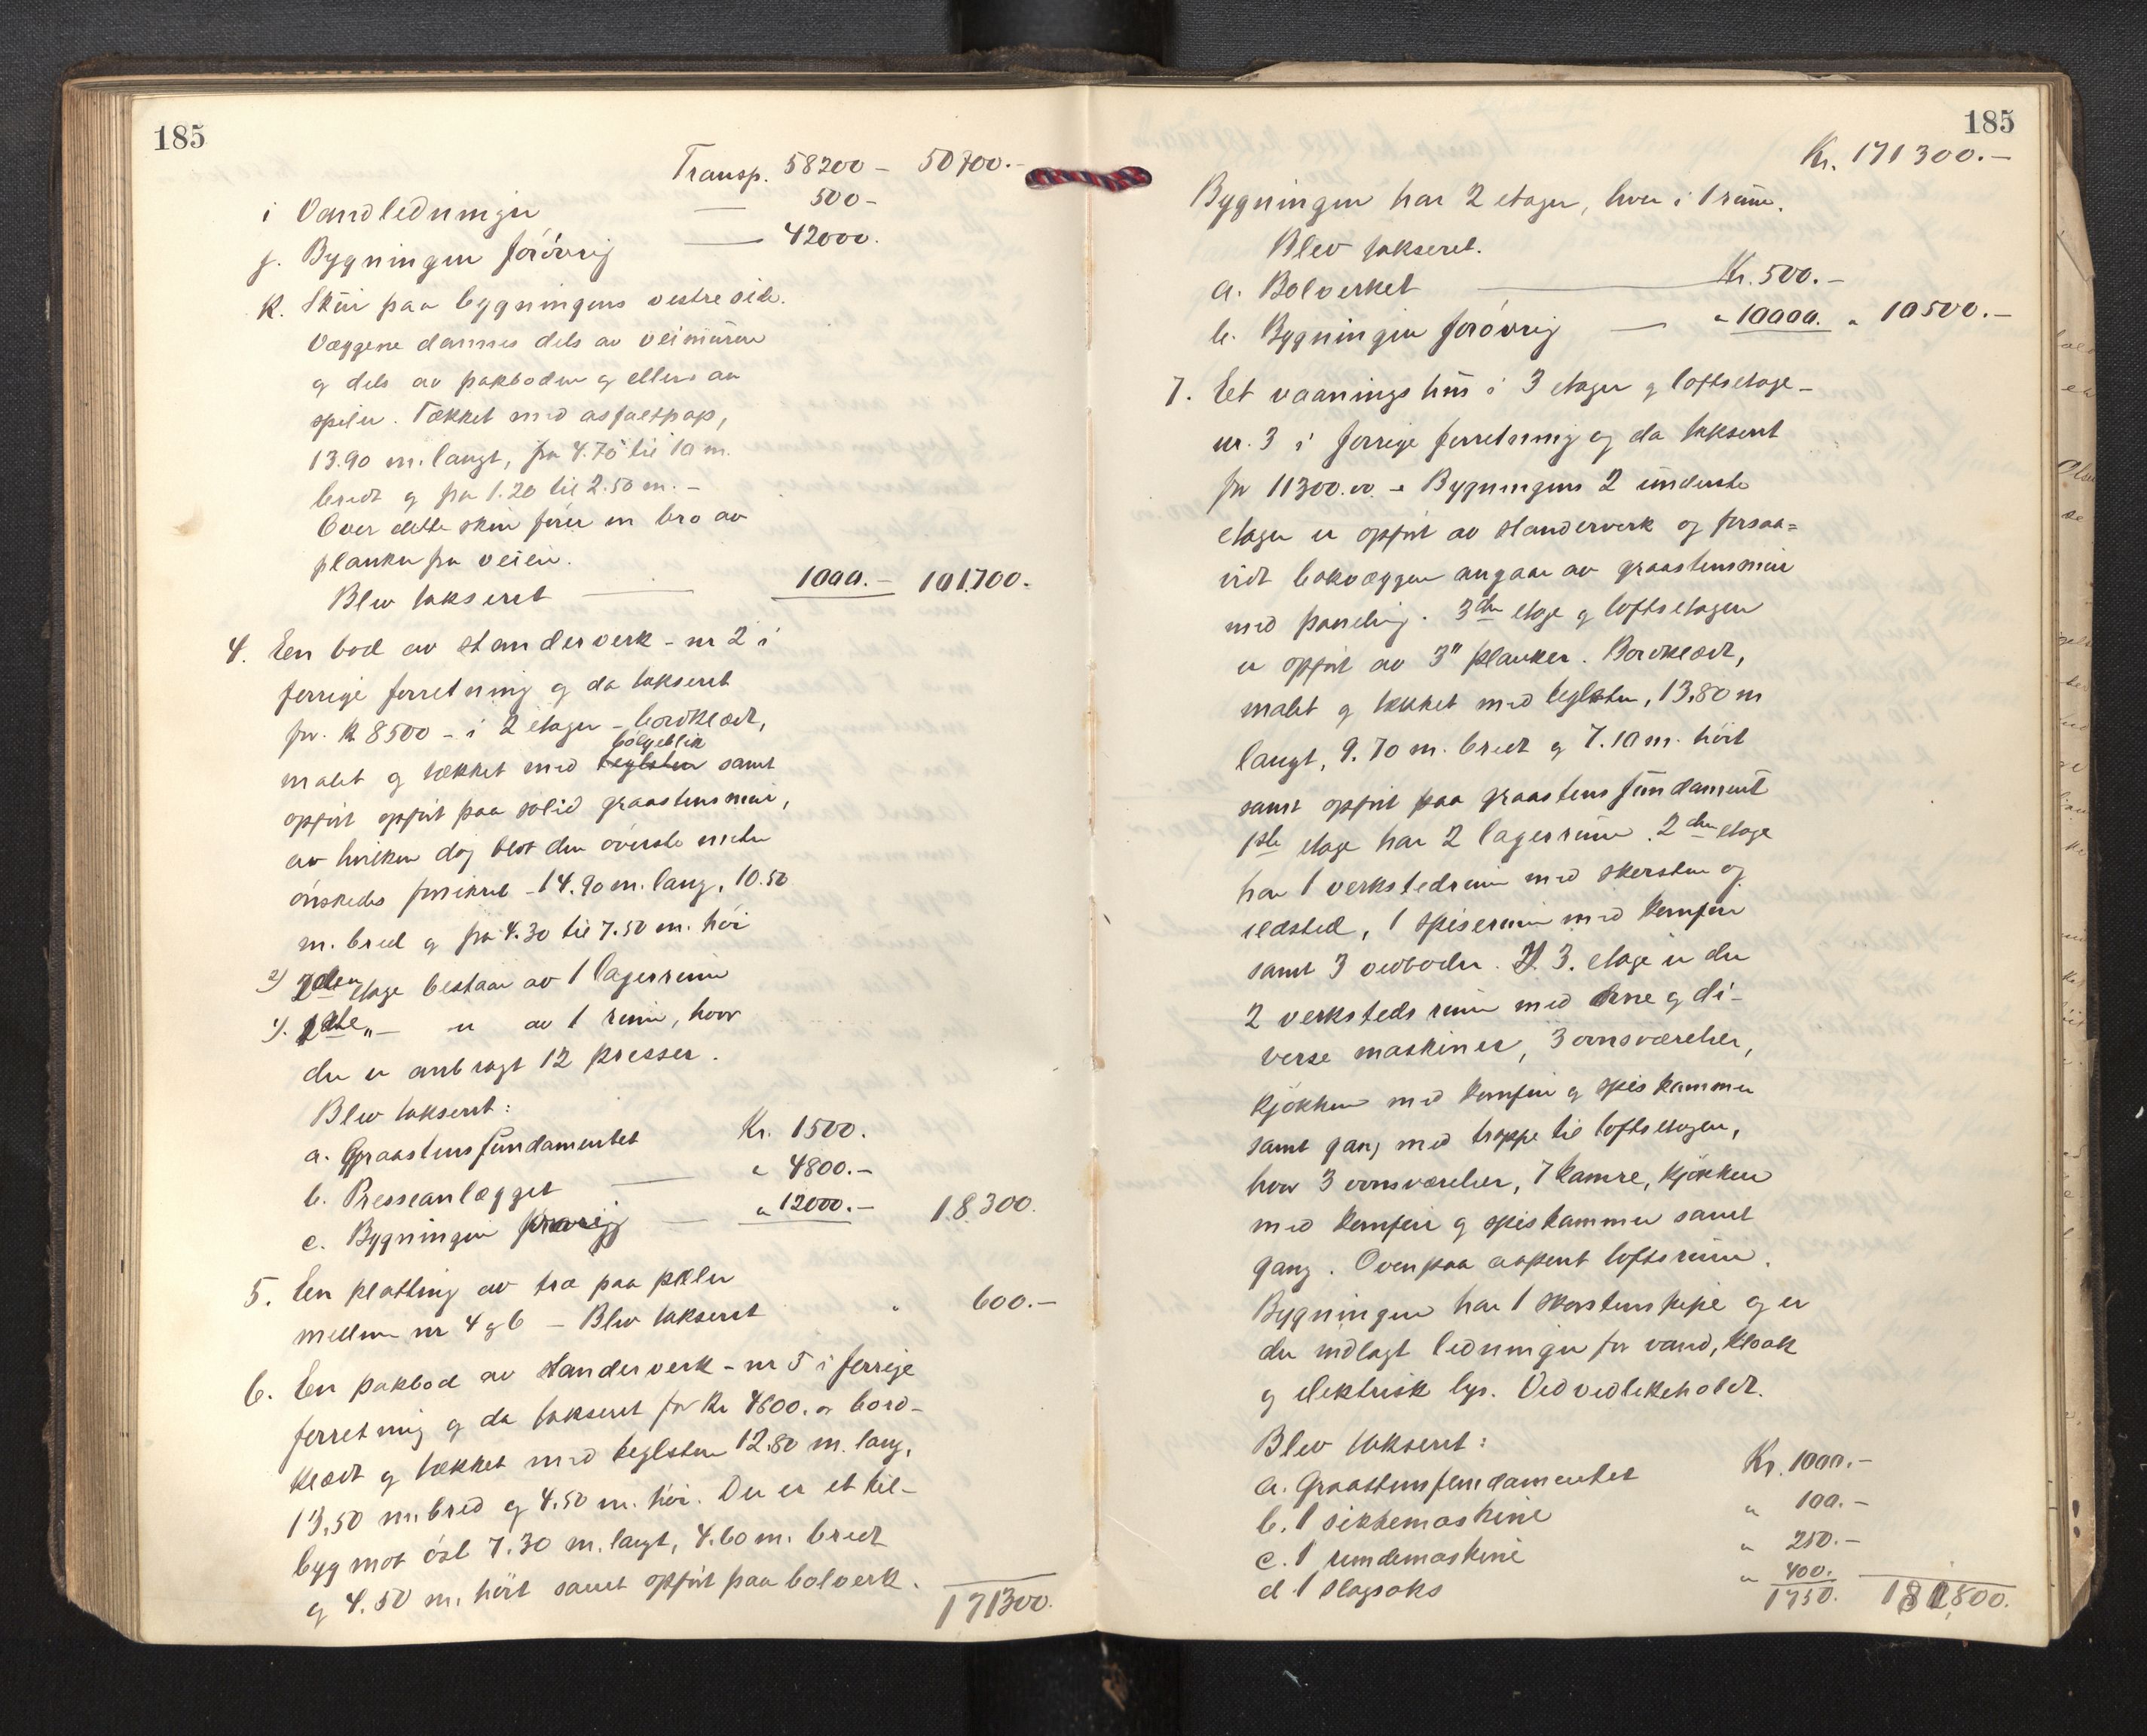 185
Transp. 58200 – 50700.–
i Vandledninger — 500–
j. Bygningen forøvrig — 42000.
k. Skur paa bygningens vestre side.
Væggene dannes dels av veimuren
og dels av pakboden og ellers av
spiler. Tækket med asfaltpap,
13.90 m. langt, fra 4.70 til 10 m.
bredt og fra 1.20 til 2.50 m. –
Over dette skur fører en bro av
planker fra veien.
Blev takseret — 1000.– 101700.
4. En bod av standerverk – nr 2 i
forrige forretning og da takseret
for. k 8500 – i 2 etager – bordklædt,
bølgeblik
malet og tækket med teglsten samt
opført opført paa solid graastensmur,
av hvilken dog blot den øverste meter
ønskedes forsikret – 14.90 m. lang, 10.50
m. bred og fra 4.30 til 7.50 m. høi
2) 2den etage bestaar av 1 lagerrum
1). 1ste „ – er av 1 rum, hvor
der er anbragt 12 presser.
Blev takseret:
a. Graastensfundamentet Kr. 1500.
b. Presseanlægget — „ 4800.–
c. Bygningen forøvrig — „ 12000.– 18300.
5. En platting av træ paa pæler
mellem nr 4 og 6 – Blev takseret „ 600.–
6. En pakbod av standerverk – nr 5 i forrige
forretning og da takseret for Kr 4600.00 bord-
klædt og tækket med teglsten 12.80 m. lang,
13.50 m. bred og 4.50 m. høi. Der er et til-
byg mot øst 7.30 m. langt, 4.60 m. bredt
og 4.50 m. høit samt opført paa bolverk.
171300.
185
Kr. 171300.–
Bygningen har 2 etager, hver i 1 rum.
Blev takseret.
a. Bolverket — Kr. 500.–
b. Bygningen forøvrig — „ 10000. „ 10500.–
7. Et vaaningshus i 3 etager og loftsetage –
nr. 3 i forrige forretning og da takseret
for 11300.00 – Bygningens 2 underste
etager er opført av standerverk og forsaa=
vidt bakvæggen angaar av graastensmur
med paneling. 3die etage og loftsetagen
er opført av 3" planker. Bordklædt,
malet og tækket med teglsten, 13.80 m
langt, 9.70 m. bredt og 7.10 m. høit
samt opført paa graastens fundament
1ste etage har 2 lagerrum. 2den etage
har 1 verkstedsrum med skorsten og
ildsted, 1 spiserum med komfur
samt 3 vedboder. I 3. etage er der
2 verksteds rum med esse og di-
verse maskiner, 3 ovnsværelser,
kjøkken med komfur og spiskammer
samt gang med trappe til loftsetagen,
hvor 3 ovnsværelser, 7 kamre, kjøkken
med komfur og spiskammer samt
gang. Ovenpaa aapent loftsrum.
Bygningen har 1 skorstenspipe og er
der indlagt ledninger for vand, kloak
og elektrisk lys. Vedvedlikeholdt.
Blev takseret:
a. Graastensfundamentet Kr. 1000.–
b. 1 sikkemaskine „ 100.–
c. 1 rundemaskine „ 250.–
d. 1 slagsaks „ 400.
1750. 181800.